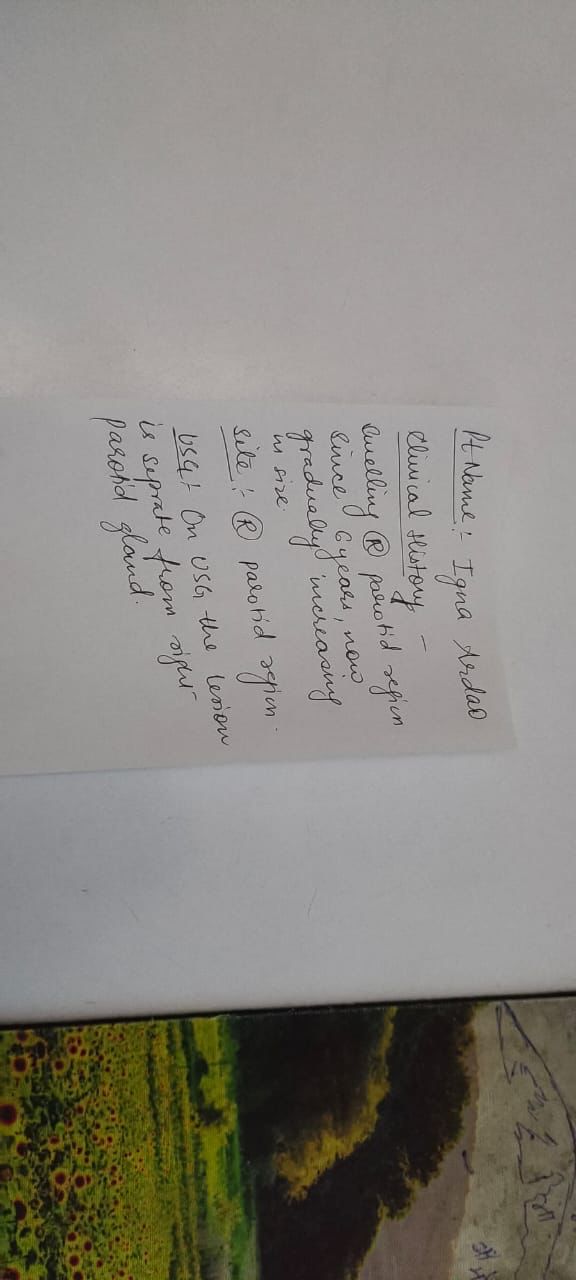 Pt Name :- Igna Ardao
Clinical History –
Swelling Ⓡ parotid region
since 6 years, now
gradually increasing
in size.
Site :- Ⓡ parotid region.
USG :- On USG, the lesion
is seprate from right
parotid gland.